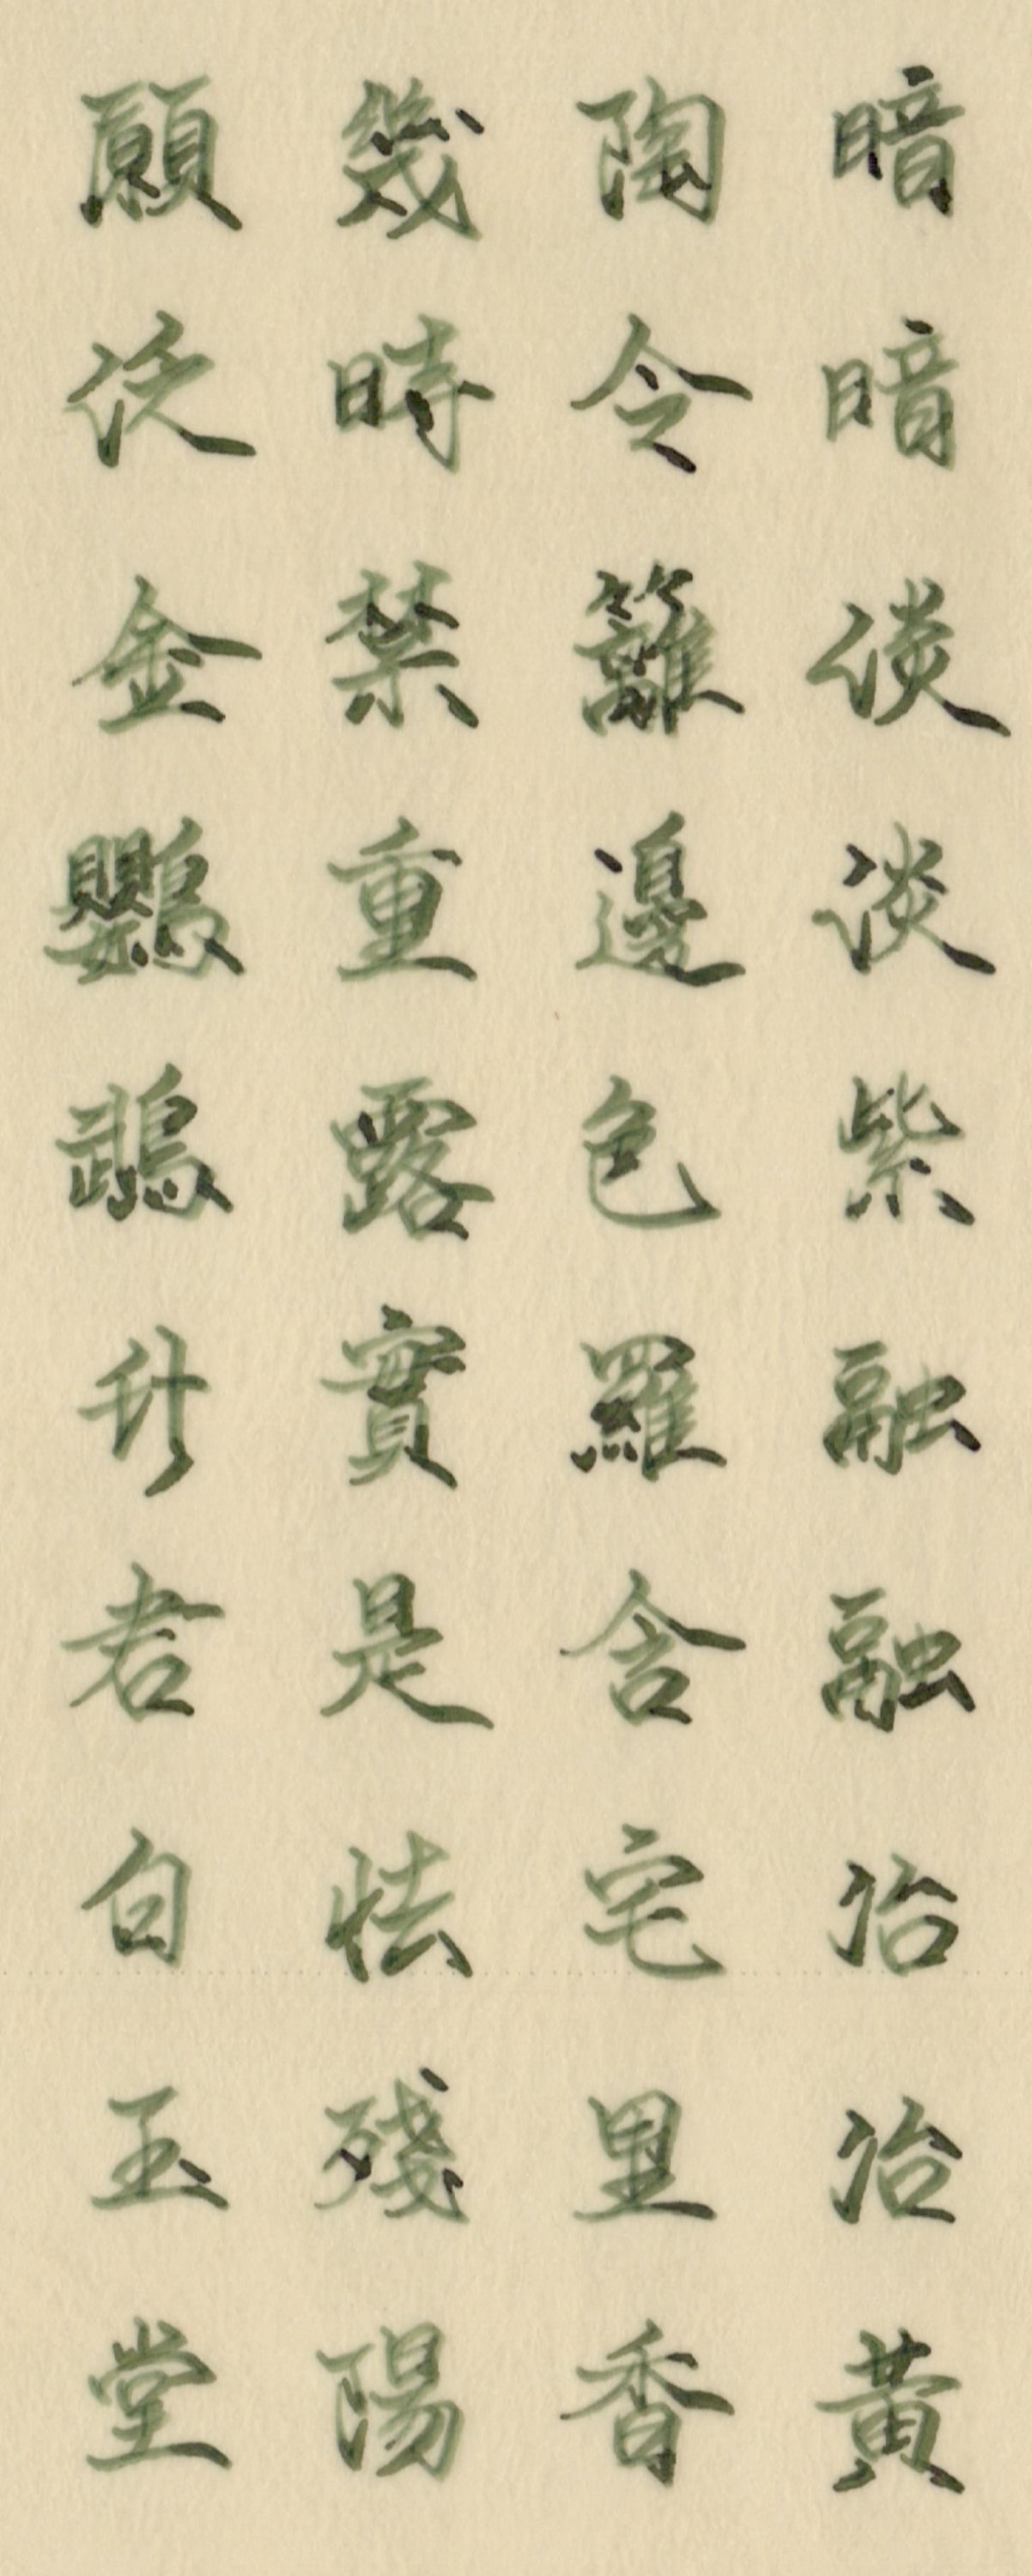 暗暗淡淡紫融融冶冶黃
陶令籬邊色羅含宅里香
幾時禁重露實是怯殘陽
願泛金鸚鵡升君白玉堂